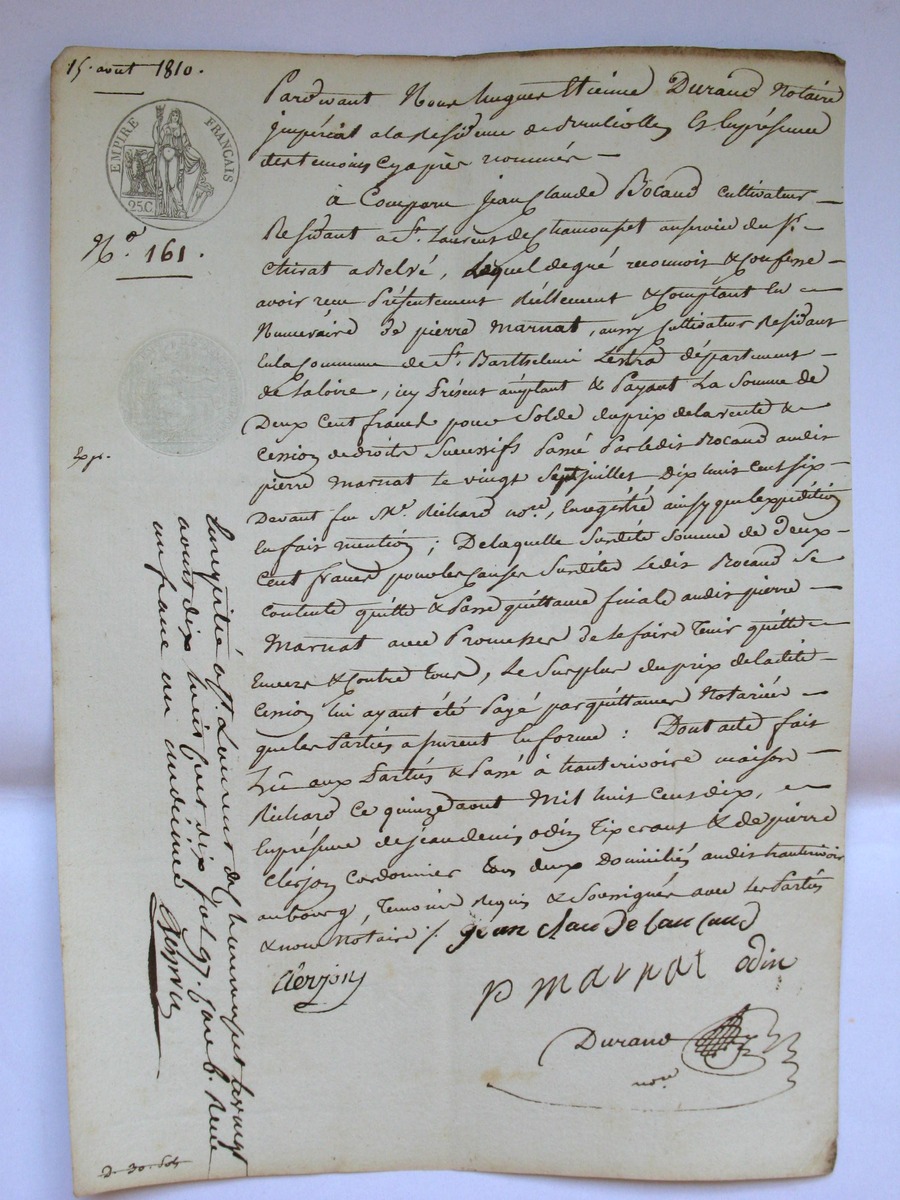 15. aout 1810.
EMPIRE FRANÇAIS
25C.
N.o 161.
Expé.
Pardevant Nous hugues Etienne Durand Notaire
jmpérial a la Residence de Brulliolles Et En présence
des temoins Cy après nommés —
à Comparu Jean Claude Bocaud Cultivateur —
Residant a St. Laurent de Chamousset au service du Sr. —
Chirat a Belvé, Lequel de gré reconnoit & Confesse —
avoir reçu Présentement Réellement & Comptant En —
Numeraire de pierre Marnat, aussy Cultivateur Residant
En la Commune de St. Barthelemi Lestra département —
de la loire, icy Présent acceptant & Payant La Somme de
Deux Cent francs pour Solde du prix de la vente &
Cession de droits Successifs Passé Par ledit Bocaud audit
pierre Marnat le vingt Sept juillet Dix huit Cent Six —
Devant feu Me. Richard nore, Enregistré ainsy que l'expédition
En fait mention; De laquelle Susdite Somme de deux —
Cent francs pour les Causes Susdites Ledit Bocaud Se
Contente quitte & Passe quittance finale audit pierre —
Marnat avec Promesses de le faire Tenir quitte —
Envers & Contre tous, Le Surplus du prix de la dite —
Cession lui ayant été Payé par quittances Notariées —
que les Parties assurent En forme : Dont acte fait
Lû aux Parties & Passé à hauterivoire maison —
Richard Ce quinze aout Mil huit Cent dix, —
En présence de jean denis odin Tixerant & de pierre
Clerjon Cordonnier tous deux Domiciliés audit hauterivoire
au bourg, Temoins Requis & Soussignés avec Les Parties
& nous Notaire /.
jean claude
Clerjon
p marnat odin
Durand
nore
Enregistré a St. Laurent de Chamousset le vingt
aout dix huit Cent dix fol. 97. C. 6. Reçu
un franc un decime
2. 30. sols